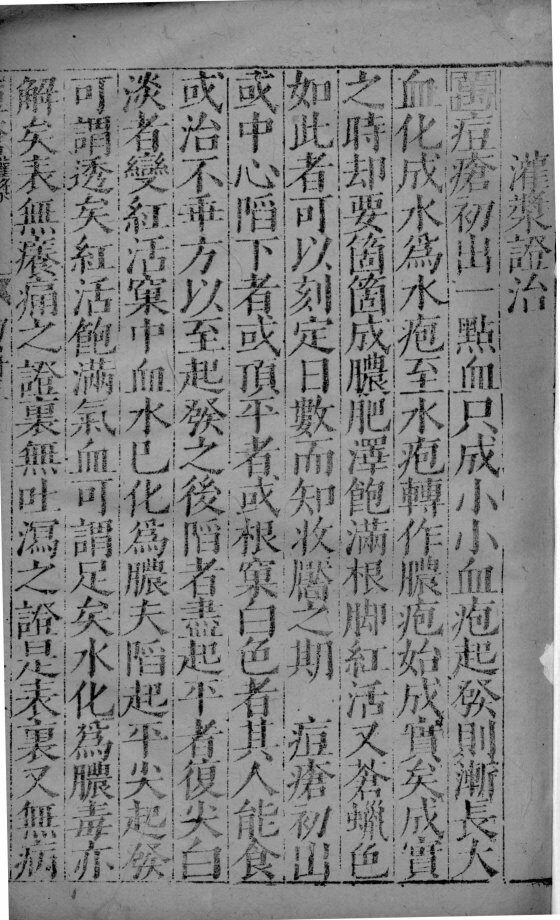 灌漿證治
萬痘瘡初出一點血只成小小血疱起發則漸長大
血化成水爲水疱至水疱轉作膿疱始成實矣成實
之時却要箇箇成膿肥澤飽滿根脚紅活又蒼蠟色
如此者可以刻定日數而知收靨之期　痘瘡初出
或中心陷下者或頂平者或根窠白色者其人能食
或治不乖方以至起發之後陷者盡起平者復尖白
淡者變紅活窠中血水已化爲膿夫陷起平尖起發
可謂透矣紅活飽滿氣血可謂足矣水化爲膿毒亦
解矣表無癢痛之證裏無吐瀉之證是表裏又無病